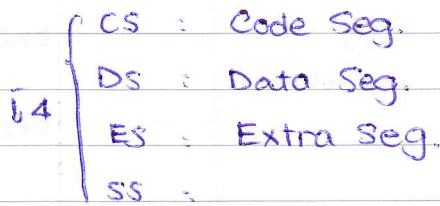 CS : Code Seg.
DS : Data Seg.
ES : Extra Seg.
SS :